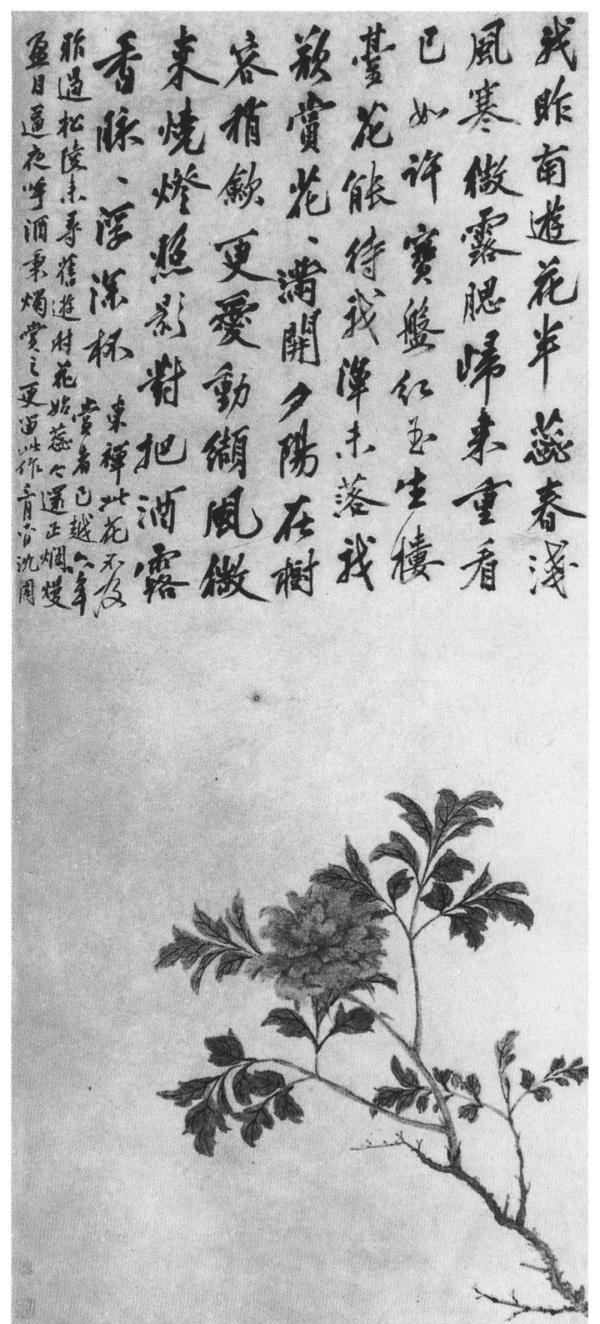 我昨南遊花半蕊春淺
風寒微露腮歸来重看
已如許寳盤紅玉生樓
臺花能待我渾未落我
欲賞花、滿開夕陽在樹
容稍歛更愛動纈風微
来燒燈照影對把酒露
香脉、浮深杯
東禪此花不及
賞者已越六年
昨過松陵未尋舊遊時花始蕊今還正爛熳
盈目遂夜呼酒秉燭賞之更留此作 沈周